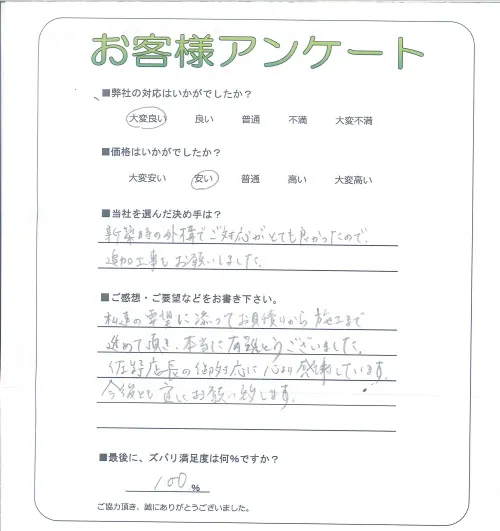 お客様アンケート
■弊社の対応はいかがでしたか？
大変良い 良い 普通 不満 大変不満
■価格はいかがでしたか？
大変安い 安い 普通 高い 大変高い
■当社を選んだ決め手は？
新築時の外構でご対応がとても良かったので、
追加工事もお願いしました。
■ご感想・ご要望などをお書き下さい。
私達の要望に添ってお見積りから施工まで
進めて頂き、本当に有難とうございました。
佐野店長の御対応に心より感謝しています。
今後とも宜しくお願い致します。
■最後に、ズバリ満足度は何％ですか？
100％
ご協力頂き、誠にありがとうございました。